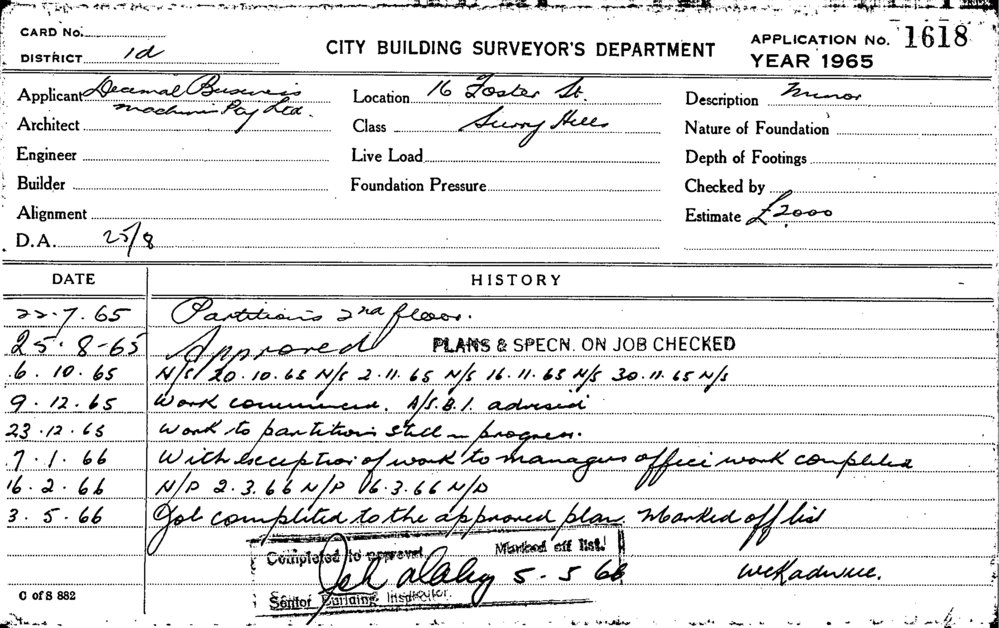 CARD No.
DISTRICT 1d
CITY BUILDING SURVEYOR'S DEPARTMENT
APPLICATION No. 1618
YEAR 1965
Applicant Decimal Business
Machines Pty Ltd.
Location 16 Foster St.
Description Minor
Architect
Class Surry Hills
Nature of Foundation
Engineer
Live Load
Depth of Footings
Builder
Foundation Pressure
Checked by
Alignment
Estimate £2000
D.A. 25/8
DATE HISTORY
22.7.65 Partitions 2nd floor.
25.8-65 Approved PLANS & SPECN. ON JOB CHECKED
6.10.65 N/S 20.10.65 N/S 2.11.65 N/S 16.11.65 N/S 30.11.65 N/S
9.12.65 Work commenced. A/S.B.I. advised
23.12.65 Work to partition still in progress.
7.1.66 With exception of work to managers office work completed
16.2.66 N/P 2.3.66 N/P 16.3.66 N/P
3.5.66 Job completed to the approved plan. Marked off list
Completed to approval Marked off list.
5-5 66
Senior Building Inspector.
C of S 882